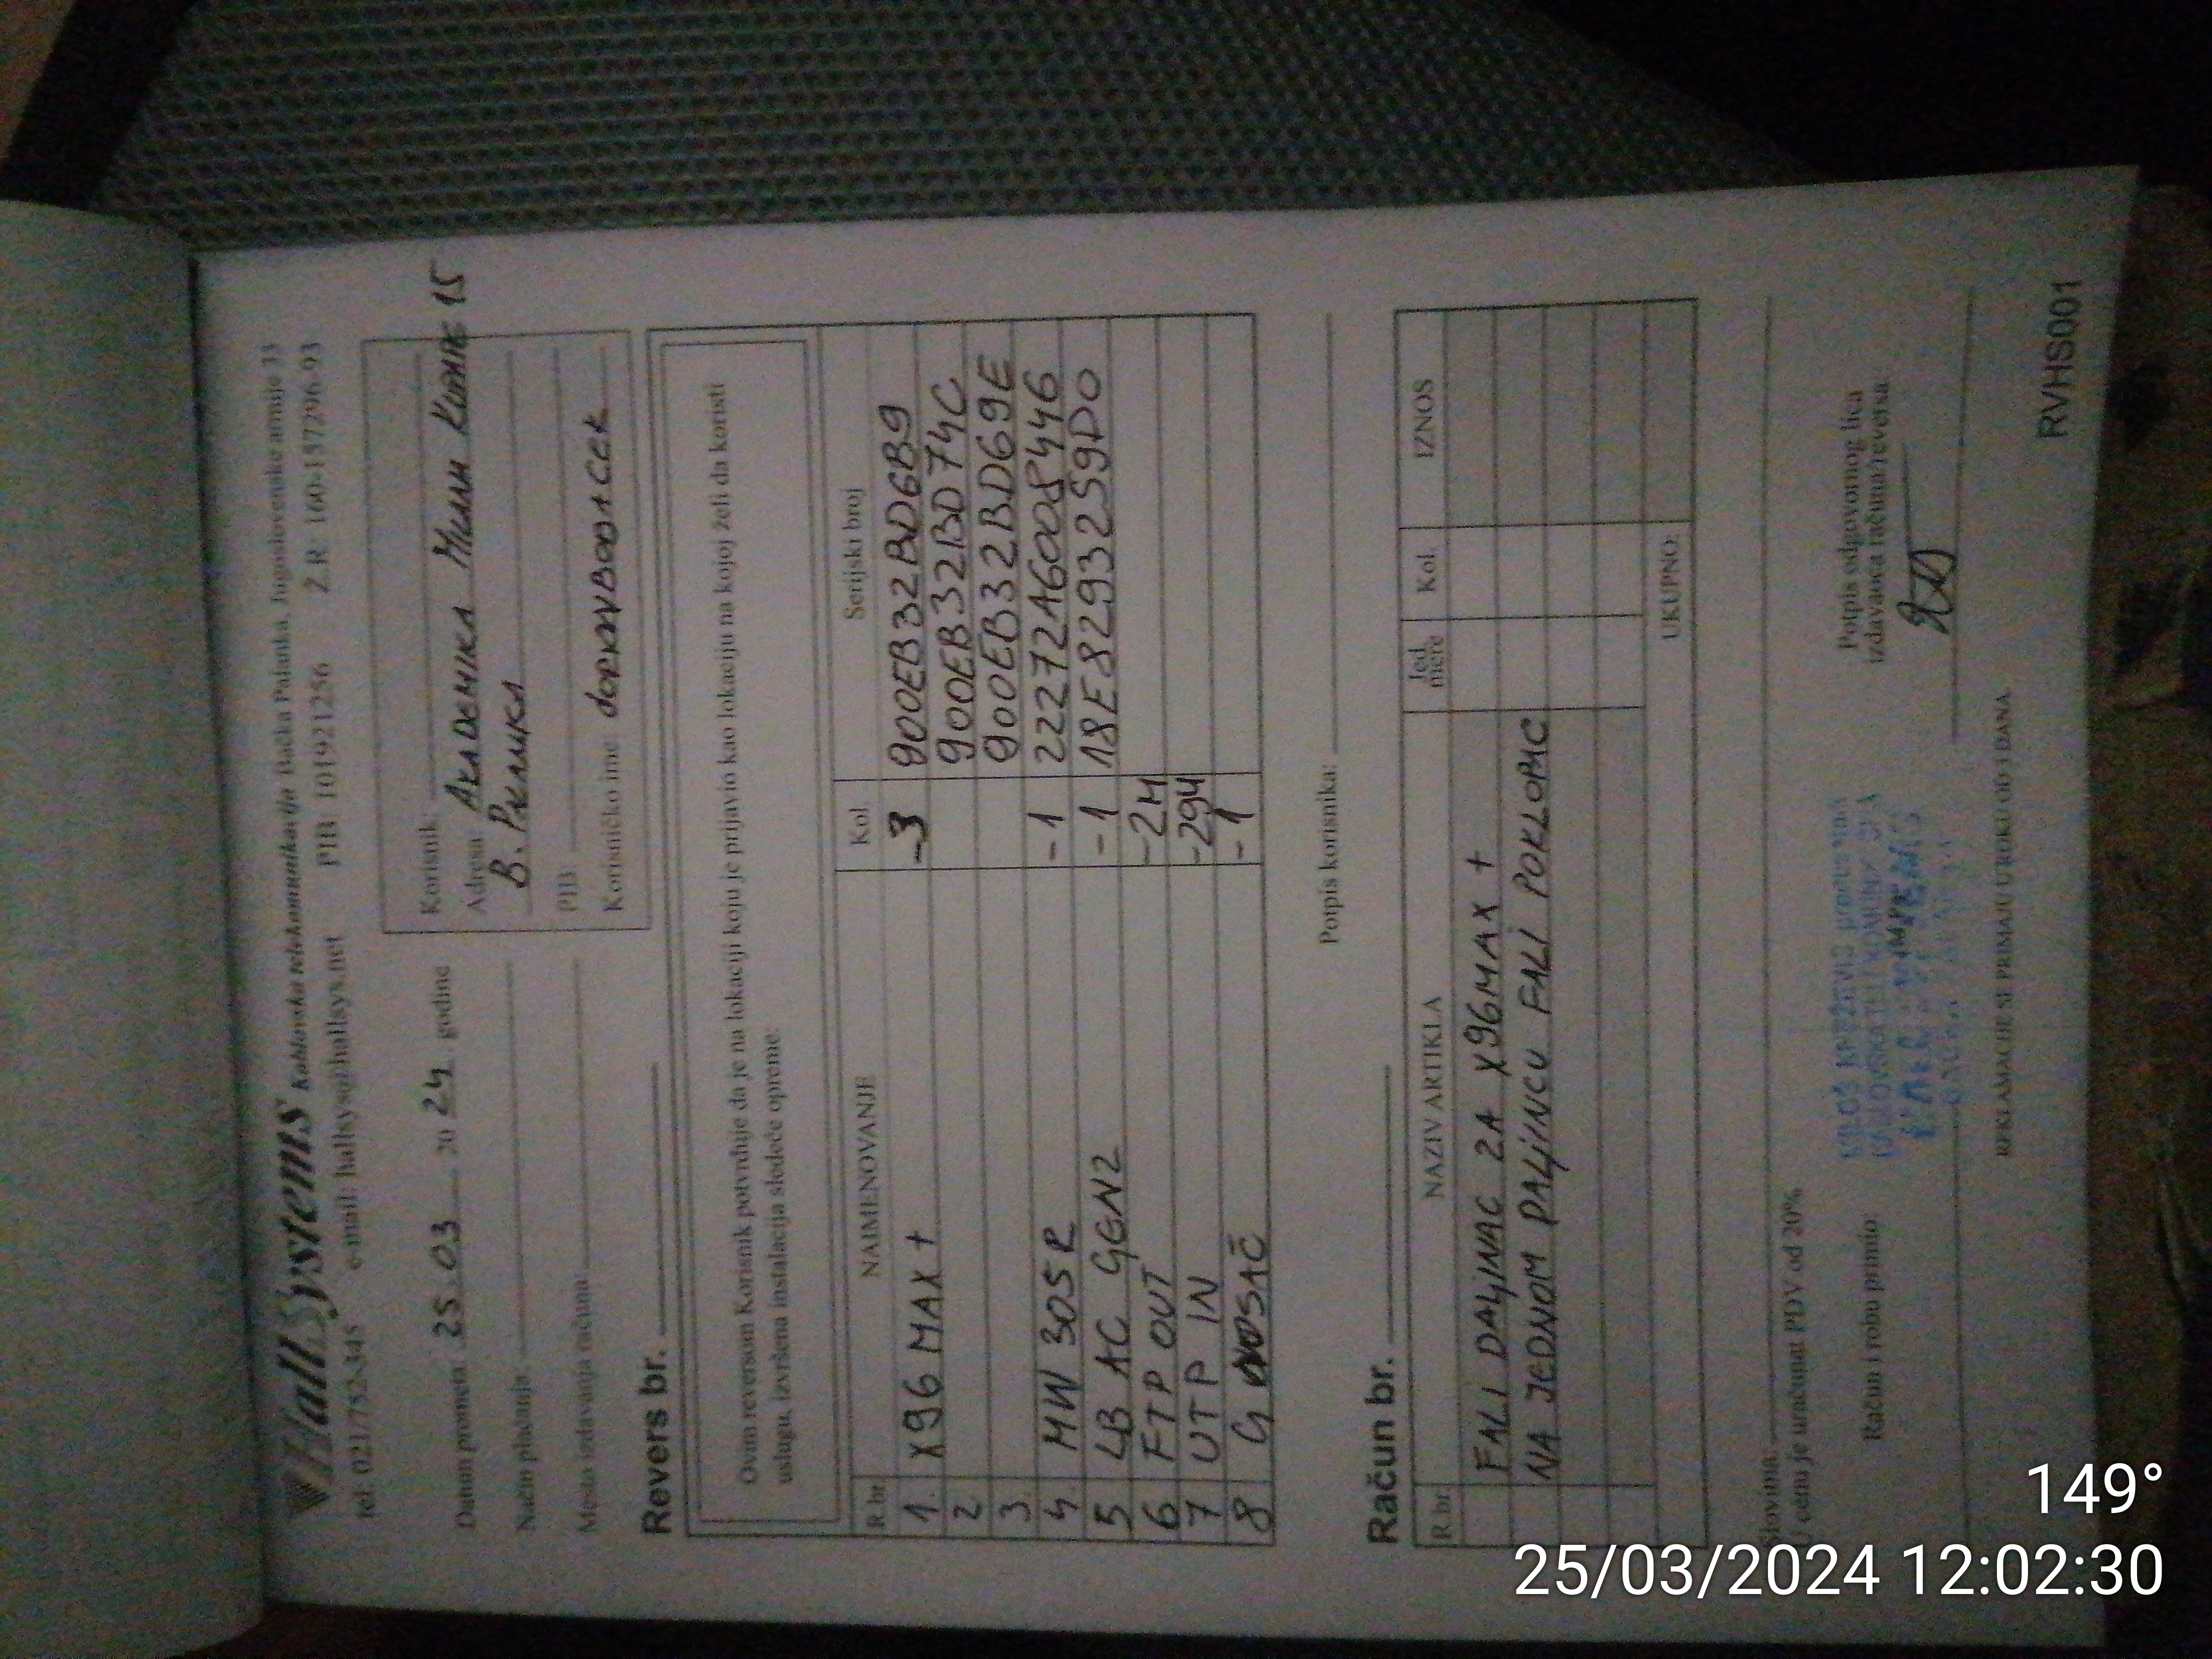 HallSystems Kablovska telekomunikacija Bačka Palanka, Jugoslovenske armije 33
tel: 021/752-345 e-mail: hallsys@hallsys.net PIB 101921256 Ž.R: 160-157296-93
Datum prometa 25.03 20 24 godine
Način plaćanja:
Mesto izdavanja računa:
Korisnik:
Adresa Академика Милан Курепе 15
Б. Паланка
PIB:
Korisničko ime:
Revers br.
Ovim reversom Korisnik potvrđuje da je na lokaciji koju je prijavio kao lokaciju na kojoj želi da koristi
uslugu, izvršena instalacija sledeće opreme:
R.br. NAIMENOVANJE Kol. Serijski broj
1. X96 MAX + -3 900EB32BD6B9
2 900EB32BD74C
3. 900EB32BD69E
4 MW 305R -1 22272A6008446
5 LB AC GEN2 -1 18E8293259D0
6 FTP OUT -2M
7 UTP IN -29M
8 G NOSAČ -1
Potpis korisnika:
Račun br.
R.br. NAZIV ARTIKLA Jed. mere Kol. IZNOS
FALI DALJINAC ZA X96MAX +
NA JEDNOM DALJINCU FALI POKLOPAC
UKUPNO:
Slovima:
U cenu je uračunat PDV od 20%
Račun i robu primio:
Potpis odgovornog lica
izdavaoca računa/reversa
REKLAMACIJE SE PRIMAJU U ROKU OD 3 DANA
RVHS001
149°
25/03/2024 12:02:30